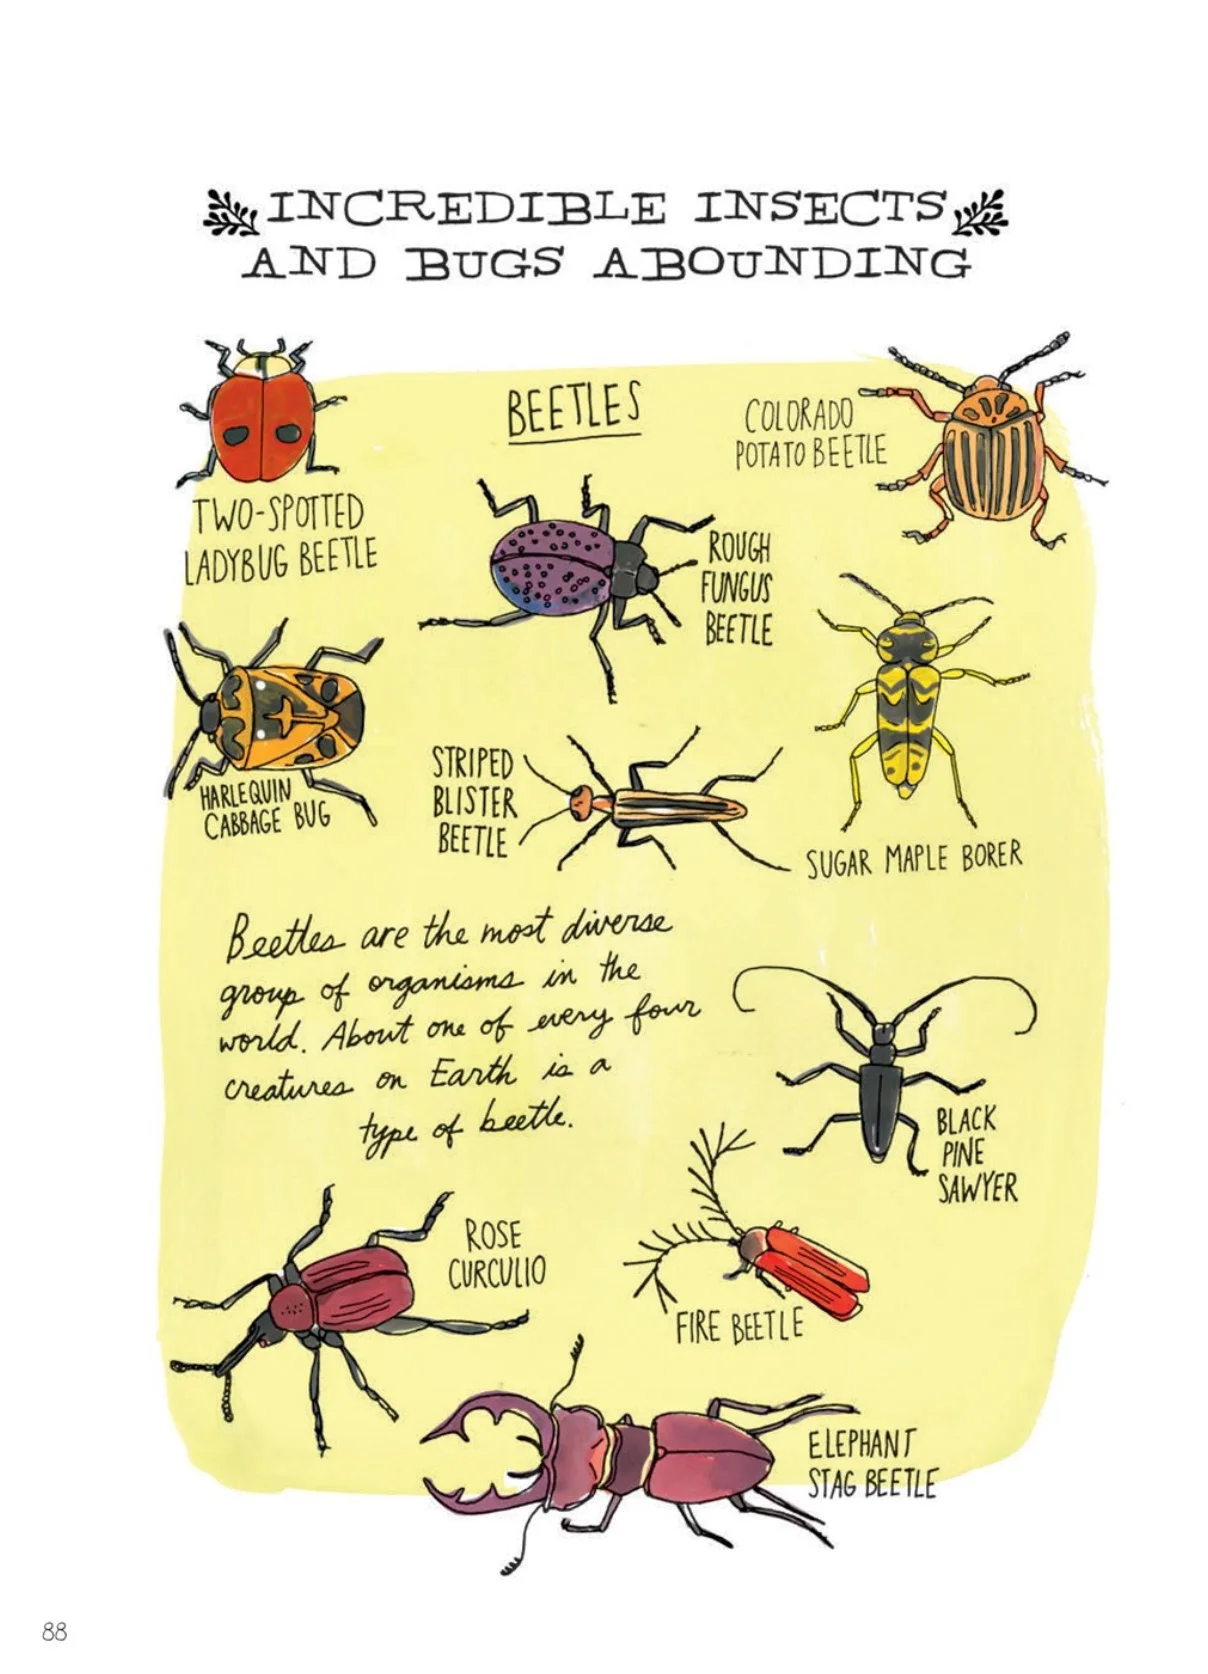 INCREDIBLE INSECTS
AND BUGS ABOUNDING
BEETLES
COLORADO
POTATO BEETLE
TWO-SPOTTED
LADYBUG BEETLE
ROUGH
FUNGUS
BEETLE
HARLEQUIN
CABBAGE BUG
STRIPED
BLISTER
BEETLE
SUGAR MAPLE BORER
Beetles are the most diverse
group of organisms in the
world. About one of every four
creatures on Earth is a
type of beetle.
BLACK
PINE
SAWYER
ROSE
CURCULIO
FIRE BEETLE
ELEPHANT
STAG BEETLE
88